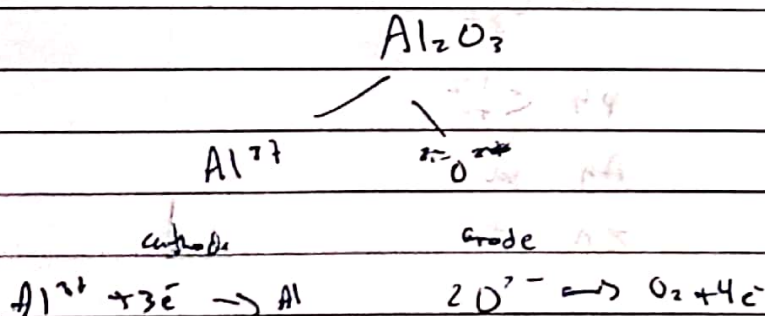 Al₂O₃
Al³⁺ O²⁻
cathode anode
Al³⁺ + 3e⁻ → Al 2O²⁻ → O₂ + 4e⁻